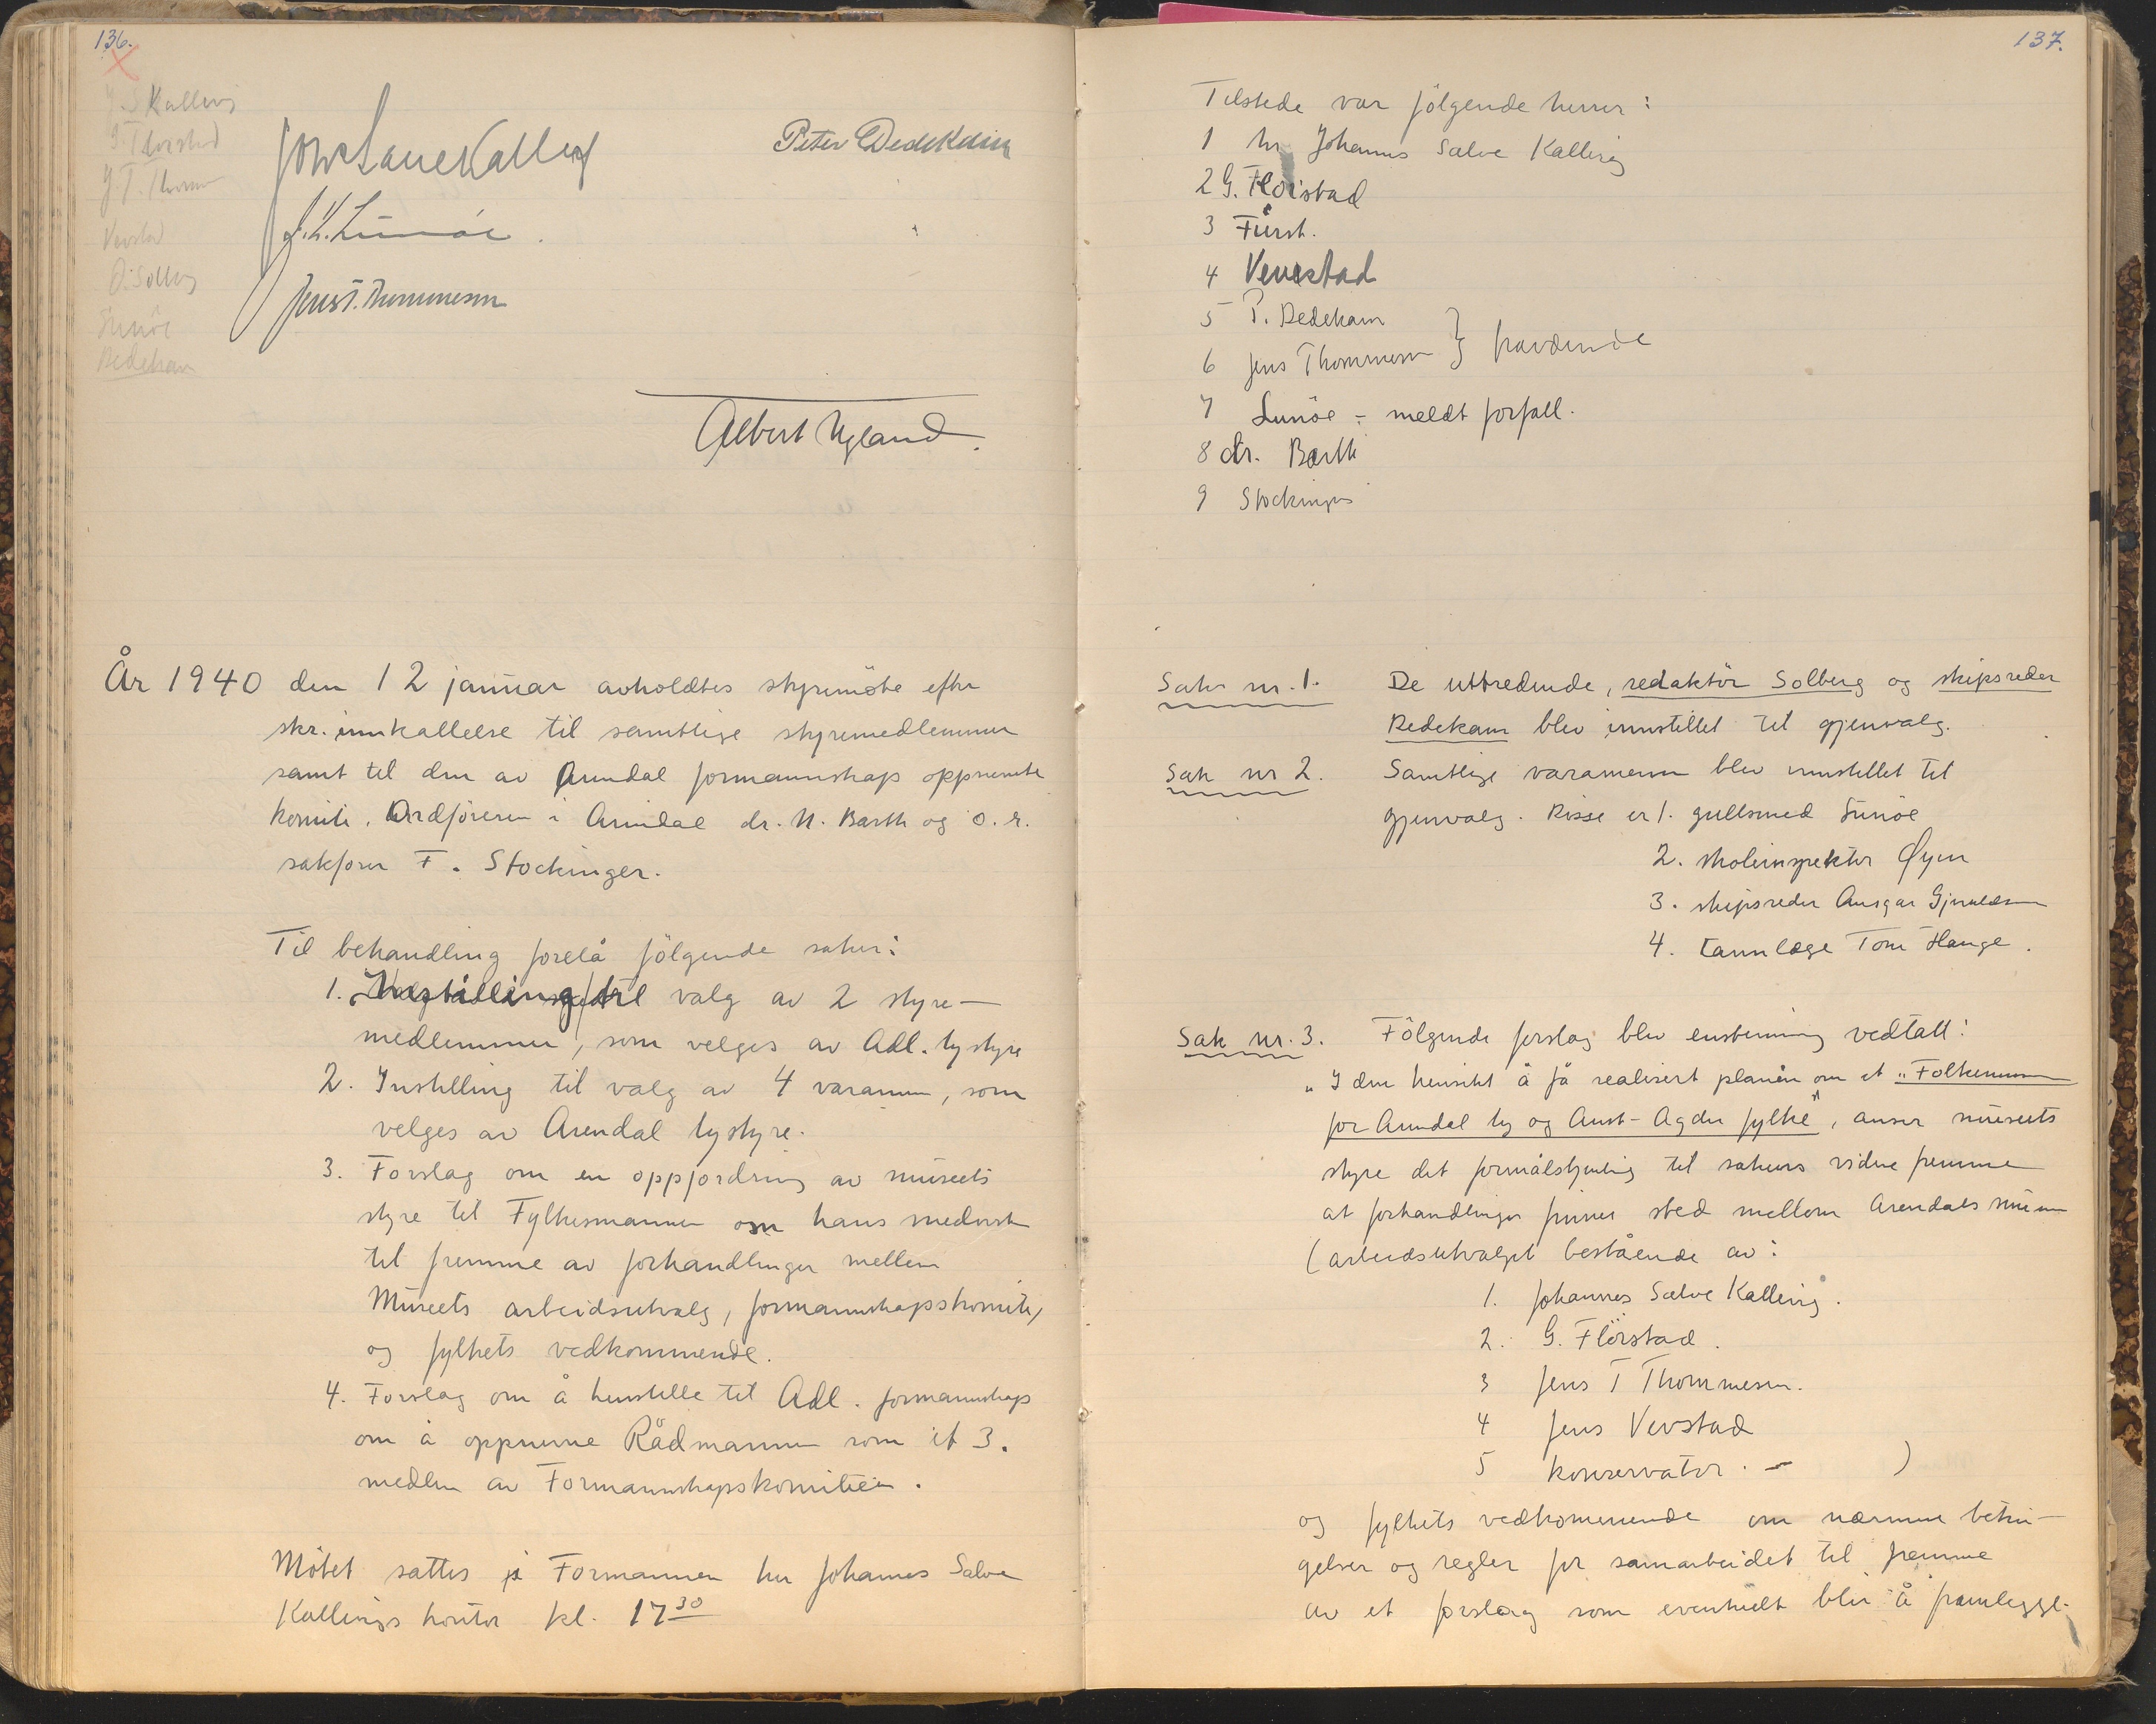 136.
J. S Kallevig
G. Flørstad
J T. Thomm
Vevstad
O. Solberg
Lunöe
Dedekam
Joh Salve Kallevig
Peter Dedekam
J. K. Lunöe.
Jens T. Thommesen
Albert Ugland.
År 1940 den 12 januar avholdtes styremöte efter
skr. innkallelse til samtlige styremedlemmer
samt til den av Arendal formannskap oppnevnte
komite. Ordföreren i Arendal dr. N. Barth og o. r.
sakfører F. Stockinger.
Til behandling forelå fölgende saker:
1. Instilling til valg av 2 styre-
medlemmer, som velges av Adl. bystyre
2. Instilling til valg av 4 varamenn, som
velges av Arendal bystyre.
3. Forslag om en oppfordring av museets
styre til Fylkesmannen om hans medvirken
til fremme av forhandlinger mellem
Museets arbeidsutvalg, formannskapskomite,
og fylkets vedkommende.
4. Forslag om å henstille til Adl. formannskap
om å oppnevne Rådmannen som et 3.
medlem av Formannskapskomitéen.
Mötet sattes på Formannen hr Johannes Salve
Kallevigs kontor kl. 17 30
137.
Tilstede var fölgende herrer:
1 hr Johannes Salve Kallevig
2 G. Floistad
3 Fürst.
4 Vevstad
5 P. Dedekam
6 Jens Thommesen } fraværende
7 Lunöe - meldt forfall.
8 dr. Barth
9 Stockinger
Saker nr. 1. De uttredende, redaktör Solberg og skipsreder
Dedekam blev innstillet til gjenvalg.
Sak nr 2. Samtlige varamenn blev innstillet til
gjenvalg. Disse er 1. gullsmed Lunöe
2. skoleinspektör Øyen
3. skipsreder Ansgar Gjeruldsen
4. tannlæge Tom Hauge.
Sak nr. 3. Fölgende forslag blev enstemmig vedtatt:
"I den hensikt å få realisert planen om et "Folkemuseum
for Arendal by og Aust-Agder fylke", anser museets
styre det formålstjenlig til sakens videre fremme
at forhandlinger finner sted mellem Arendals museum
(arbeidsutvalget bestående av:
1. Johannes Salve Kallevig.
2. G. Flörstad.
3 Jens T Thommesen.
4 Jens Vevstad
5 konservator. - )
og fylkets vedkommende om nærmere betin-
gelser og regler for samarbeidet til fremme
av et forslag som eventuelt blir å fremlegge.